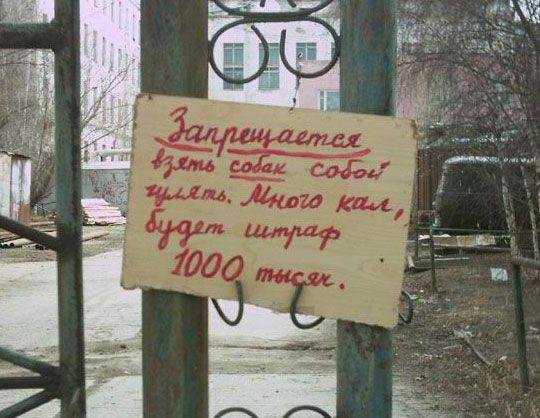 Запрещается
взять собак собой
гулять. Много кал,
будет штраф
1000 тысяч.